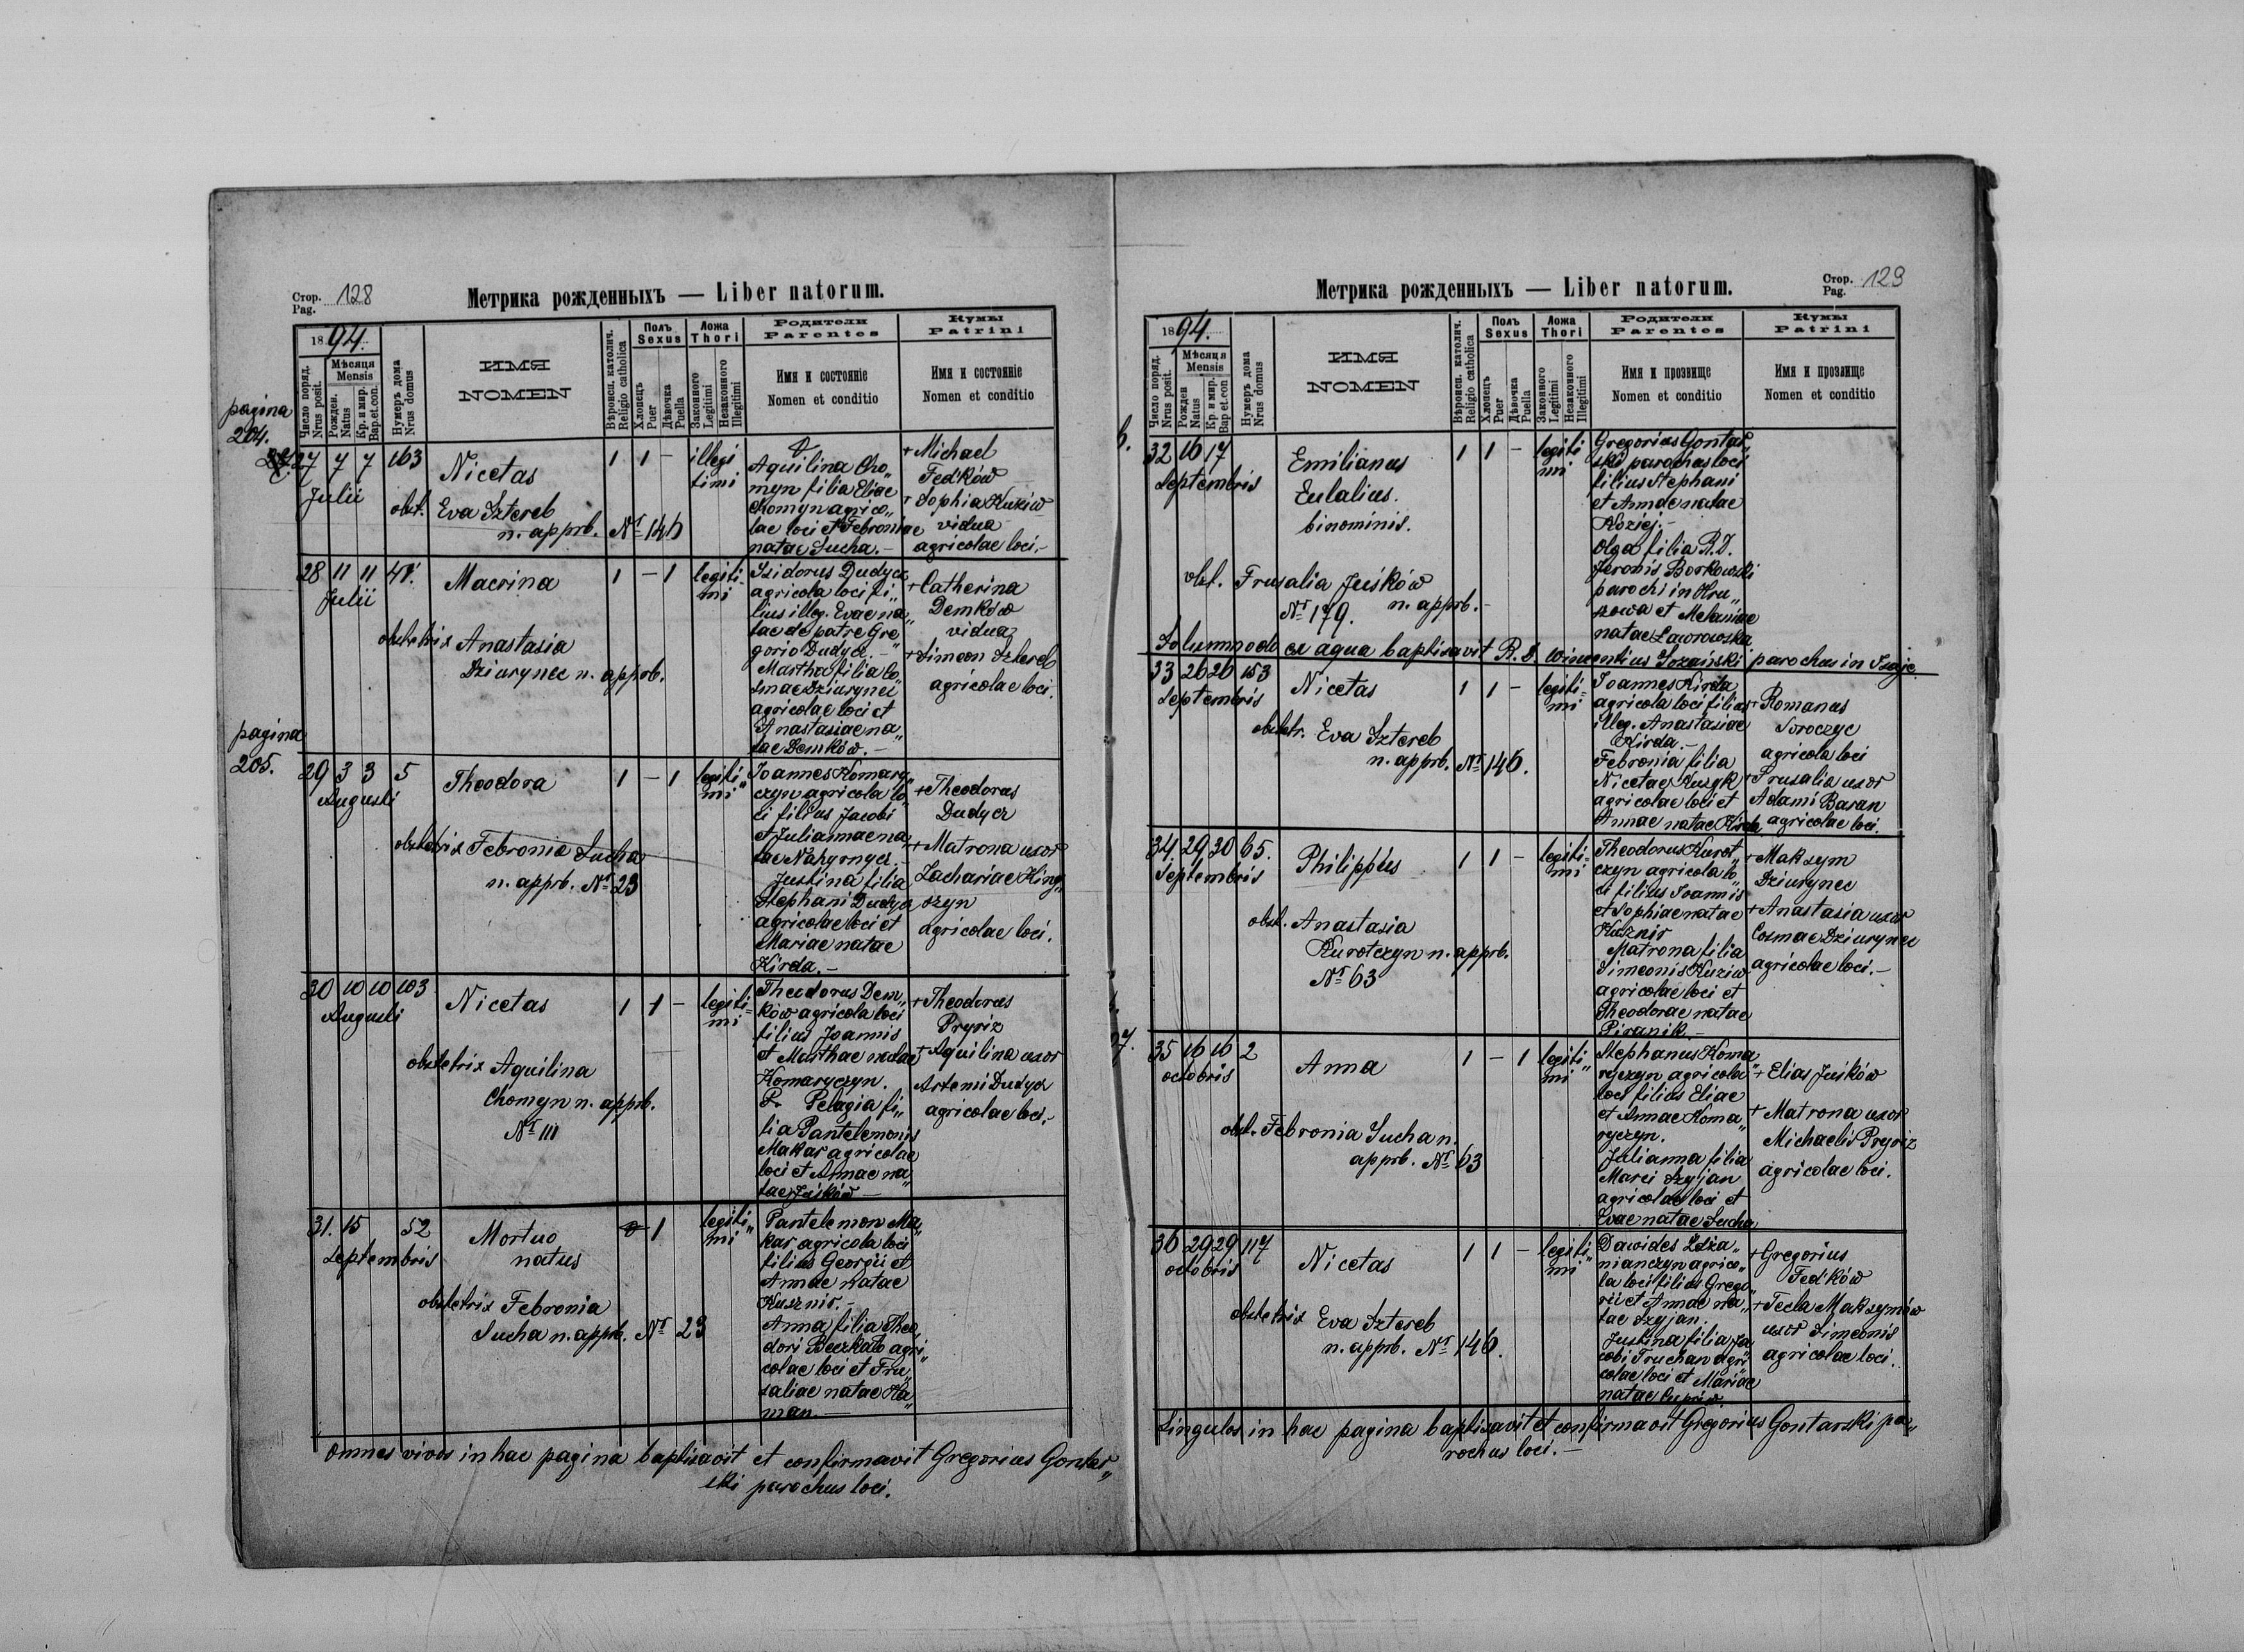 Стор. Pag. 128
Метрика рожденныхъ — Liber natorum.
1894.
Число поряд. Nrus posit.
Мѣсяца Mensis
Рожден. Natus
Кр. и мир. Bap. et con.
Нумеръ дома Nrus domus
ИМЯ
NOMEN
Вѣроисп. католич. Religio catholica
Полъ Sexus
Хлопецъ Puer
Дѣвочка Puella
Ложа Thori
Законного Legitimi
Незаконного Illegitimi
Родители
Parentes
Имя и состоянiе
Nomen et conditio
Кумы
Patrini
Имя и состоянiе
Nomen et conditio
pagina
204.
27 7 7 163 Nicetas 1 1 — illegi
timi
Julii
obst. Eva Sztereb
n. approb. Nr 146
Aquilina Cho„
myn filia Eliae
Chomyn agrico„
lae loci et Febroniae
natae Sucha. —
+ Michael
Fedków
+ Sophia Kuziw
vidua
agricolae loci. —
28 11 11 41. Macrina 1 — 1 legiti„
mi
Julii
obstetrix Anastasia
Dziurynec n. approb.
Isidorus Dudycz
agricola loci fi„
lius illeg. Evae na„
tae de patre Gre„
gorio Dudycz. —
Martha filia Co„
smae Dziurynec
agricolae loci et
Anastasiae na„
tae Demków. —
+ Catherina
Demków
vidua
+ Simeon Sztereb
agricolae loci.
pagina
205.
29 3 3 5 Theodora 1 — 1 legiti„
mi
Augusti
obstetrix Febronia Sucha
n. approb. Nr 23
Joannes Komary„
czyn agricola lo„
ci filius Jacobi
et Juliannae na„
tae Nahyrnycz. —
Justina filia
Stephani Dudycz
agricolae loci et
Mariae natae
Kirda. —
+ Theodorus
Dudycz
+ Matrona uxor
Zachariae
agricolae loci.
30 10 10 103 Nicetas 1 1 — legiti=
mi
Augusti
obstetrix Aquilina
Chomyn n. approb.
Nr 111
Theodorus Dem„
ków agricola loci
filius Joannis
et Marthae natae
Komaryczyn.
Pelagia fi„
lia Pantelemonis
Makar agricolae
loci et Annae na„
tae Juśków —
+ Theodorus
Pryriz
+ Aquilina uxor
Artemi Dudycz
agricolae loci. —
31. 15 52 Mortuo
natus
1 legiti„
mi
Septembris
obstetrix Febronia
Sucha n. approb. Nr 23
Pantelemon Ma„
kar agricola loci
filius Georgii et
Annae natae
Kusznir. —
Anna filia Theo„
dori Beczkało agri„
colae loci et Fru„
saliae natae Ha„
man. —
Omnes vivos in hac pagina baptisavit et confirmavit Gregorius Gontar„
ski parochus loci.
Стор. Pag. 129
Метрика рожденныхъ — Liber natorum.
1894.
Число поряд. Nrus posit.
Мѣсяца Mensis
Рожден Natus
Кр. и мир. Bap. et con
Нумеръ дома Nrus domus
ИМЯ
NOMEN
Вѣроисп. католич. Religio catholica
Полъ Sexus
Хлопецъ Puer
Дѣвочка Puella
Ложа Thori
Законного Legitimi
Незаконного Illegitimi
Родители
Parentes
Имя и прозвище
Nomen et conditio
Кумы
Patrini
Имя и прозвище
Nomen et conditio
32 16 17 Emilianus
Eulalius.
binominis.
1 1 — legiti
mi
Septembris
obst. Frusalia Juśków
Nr 179. n. approb. —
Gregorius Gontar„
ski parochus loci
filius Stephani
et Annae natae
Koziej. —
Olga filia R. D.
Jeronis Borkowski
parochi in Hru„
szowa et Melaniae
natae Ławrowska
Solummodo ex aqua baptisavit R. D. Wincentius Sozański parochus in Isaje
33 26 26 153 Nicetas 1 1 — legiti=
mi
Septembris
obstetr. Eva Sztereb
n. approb. Nr 146.
Joannes Kirda
agricola loci filius
illeg. Anastasiae
Kirda. —
Febronia filia
Nicetae
agricolae loci et
Annae natae Kirda
+ Romanus
Soroczyc
agricola loci
+ Frusalia uxor
Adami Baran
agricolae loci.
34. 29 30 65. Philippus 1 1 — legiti=
mi
Septembris
obst. Anastasia
Kurotczyn n. approb.
Nr 63
Theodorus Kurot„
czyn agricola lo„
ci filius Joannis
et Sophiae natae
Kusznir
Matrona filia
Simeonis Kuziw
agricolae loci et
Theodorae natae
Piranik. —
+ Maksym
Dziurynec
+ Anastasia uxor
Cosmae Dziurynec
agricolae loci. —
35 16 16 2 Anna 1 — 1 legiti„
mi
Octobris
obst. Febronia Sucha n.
approb. Nr 63
Stephanus Koma„
ryczyn agricola
loci filius Eliae
et Annae Koma„
ryczyn.
Julianna filia
Marci Szyjan
agricolae loci et
Evae natae Sucha
+ Elias Juśków
+ Matrona uxor
Michaelis Pryriz
agricolae loci.
36 29 29 117 Nicetas 1 1 — legiti„
mi
Octobris
obstetrix Eva Sztereb
n. approb. Nr 146.
Dawides Zdża„
nianczyn agrico„
la loci filius Grego„
rii et Annae na„
tae Szyjan.
Justina filia Ja„
cobi Truchan agri„
colae loci et Mariae
natae
+ Gregorius
Fedków
+ Tecla Maksymów
uxor Simeonis
agricolae loci.
Singulos in hac pagina baptisavit et confirmavit Gregorius Gontarski pa„
rochus loci. —